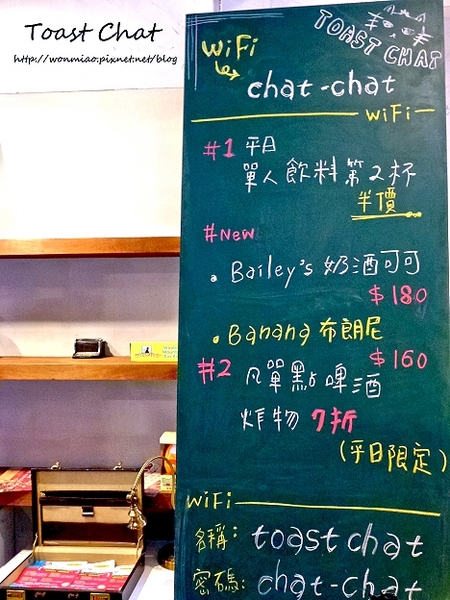 Toast Chat
http://wonmiao.pixnet.net/blog
TOAST CHAT
WiFi
chat-chat
WiFi
#1 平日
單人飲料第2杯
半價
#New
Bailey's 奶酒可可
$180
Banana 布朗尼
$160
#2 凡單點啤酒
炸物 7折
(平日限定)
WiFi
名稱: toast chat
密碼: chat-chat